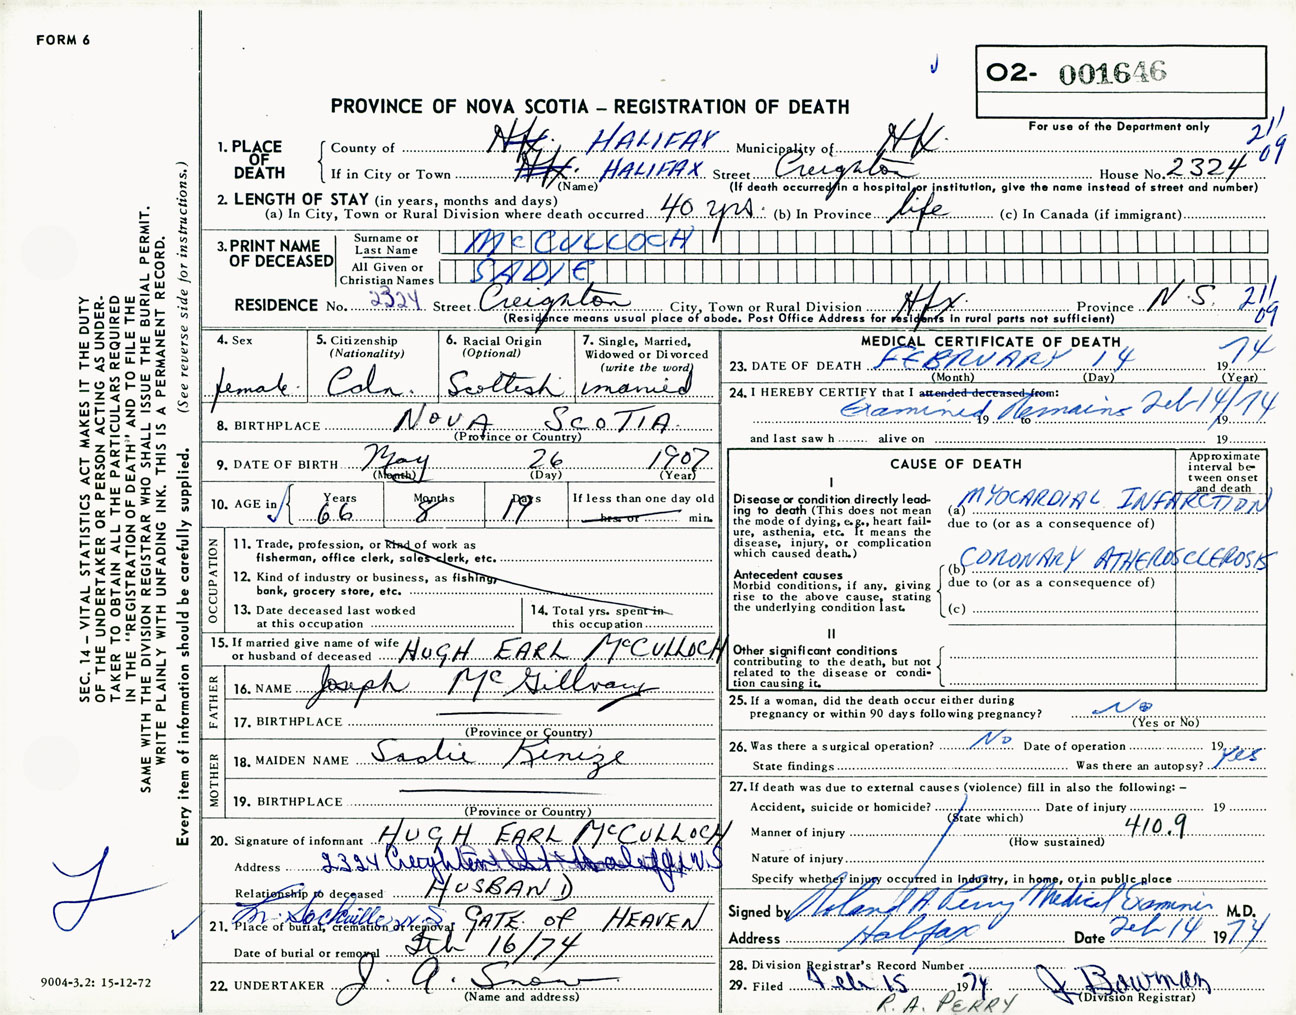 FORM 6
O2- 001646
PROVINCE OF NOVA SCOTIA – REGISTRATION OF DEATH
For use of the Department only
211
09
1. PLACE OF DEATH
County of Hfx. HALIFAX Municipality of Hfx.
If in City or Town Hfx. HALIFAX Street Creighton House No. 2324
(Name) (If death occurred in a hospital or institution, give the name instead of street and number)
2. LENGTH OF STAY (in years, months and days)
(a) In City, Town or Rural Division where death occurred 40 yrs. (b) In Province life (c) In Canada (if immigrant)
3. PRINT NAME OF DECEASED
Surname or Last Name McCULLOCH
All Given or Christian Names SADIE
RESIDENCE No. 2324 Street Creighton City, Town or Rural Division Hfx. Province N.S. 211
09
(Residence means usual place of abode. Post Office Address for residents in rural parts not sufficient)
4. Sex
female
5. Citizenship
(Nationality)
Cdn.
6. Racial Origin
(Optional)
Scottish
7. Single, Married,
Widowed or Divorced
(write the word)
married
8. BIRTHPLACE NOVA SCOTIA
(Province or Country)
9. DATE OF BIRTH May 26 1907
(Month) (Day) (Year)
10. AGE in
Years Months Days If less than one day old
66 8 19 hrs. or min.
OCCUPATION
11. Trade, profession, or kind of work as
fisherman, office clerk, sales clerk, etc.
12. Kind of industry or business, as fishing,
bank, grocery store, etc.
13. Date deceased last worked
at this occupation
14. Total yrs. spent in
this occupation
15. If married give name of wife
or husband of deceased HUGH EARL McCULLOCH
FATHER
16. NAME Joseph McGillvary
17. BIRTHPLACE
(Province or Country)
MOTHER
18. MAIDEN NAME Sadie
19. BIRTHPLACE
(Province or Country)
20. Signature of informant HUGH EARL McCULLOCH
Address 2324 Creighton St Halifax N.S
Relationship to deceased HUSBAND
M. Sackville N.S.
21. Place of burial, cremation or removal GATE OF HEAVEN
Date of burial or removal Feb 16/74
22. UNDERTAKER J. A. Snow
(Name and address)
MEDICAL CERTIFICATE OF DEATH
23. DATE OF DEATH FEBRUARY 14 1974
(Month) (Day) (Year)
24. I HEREBY CERTIFY that I attended deceased from:
Examined Remains Feb 14/74
19 to 19
and last saw h alive on 19
CAUSE OF DEATH
Approximate interval between onset and death
I
Disease or condition directly lead-
ing to death (This does not mean
the mode of dying, e.g., heart fail-
ure, asthenia, etc. It means the
disease, injury, or complication
which caused death.)
(a) MYOCARDIAL INFARCTION
due to (or as a consequence of)
Antecedent causes
Morbid conditions, if any, giving
rise to the above cause, stating
the underlying condition last.
(b) CORONARY ATHEROSCLEROSIS
due to (or as a consequence of)
(c)
II
Other significant conditions
contributing to the death, but not
related to the disease or condi-
tion causing it.
25. If a woman, did the death occur either during
pregnancy or within 90 days following pregnancy? No
(Yes or No)
26. Was there a surgical operation? No Date of operation 19
State findings Was there an autopsy? Yes
27. If death was due to external causes (violence) fill in also the following: –
Accident, suicide or homicide? Date of injury 19
(State which)
Manner of injury 410.9
(How sustained)
Nature of injury
Specify whether injury occurred in Industry, in home, or in public place
Signed by Roland A Perry Medical Examiner M.D.
Address Halifax Date Feb 14 1974
28. Division Registrar's Record Number
29. Filed Feb 15 1974 J. Bowman
(Division Registrar)
R.A. PERRY
SEC. 14 – VITAL STATISTICS ACT MAKES IT THE DUTY
OF THE UNDERTAKER OR PERSON ACTING AS UNDER-
TAKER TO OBTAIN ALL THE PARTICULARS REQUIRED
IN THE "REGISTRATION OF DEATH" AND TO FILE THE
SAME WITH THE DIVISION REGISTRAR WHO SHALL ISSUE THE BURIAL PERMIT.
WRITE PLAINLY WITH UNFADING INK. THIS IS A PERMANENT RECORD.
Every item of information should be carefully supplied. (See reverse side for instructions.)
9004-3.2: 15-12-72